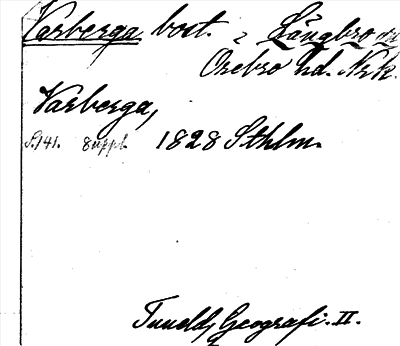 Varberga bost. i Längbro sn
Örebro hd. Nrk.
Varberga,
S. 141. 8 uppl. 1828 Sthlm.
Tunelds Geografi. II.